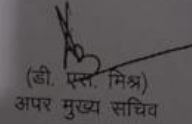 (डी. एस. मिश्र)
अपर मुख्य सचिव